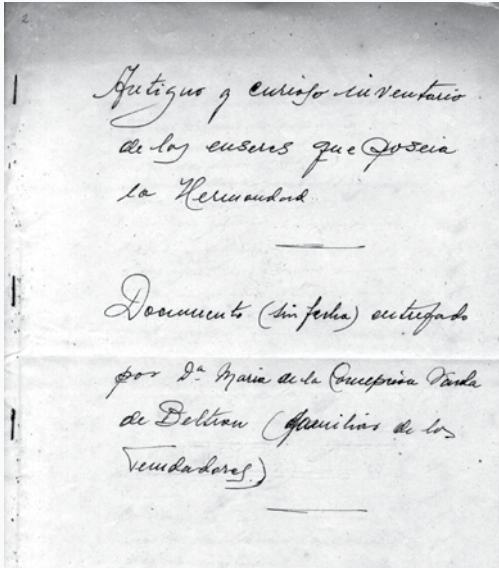 2
Antiguo y curioso inventario
de los enseres que poseia
la Hermandad
Documento (sin fecha) entregado
por Dª Maria de la Concepcion
de Beltran (familiar de los